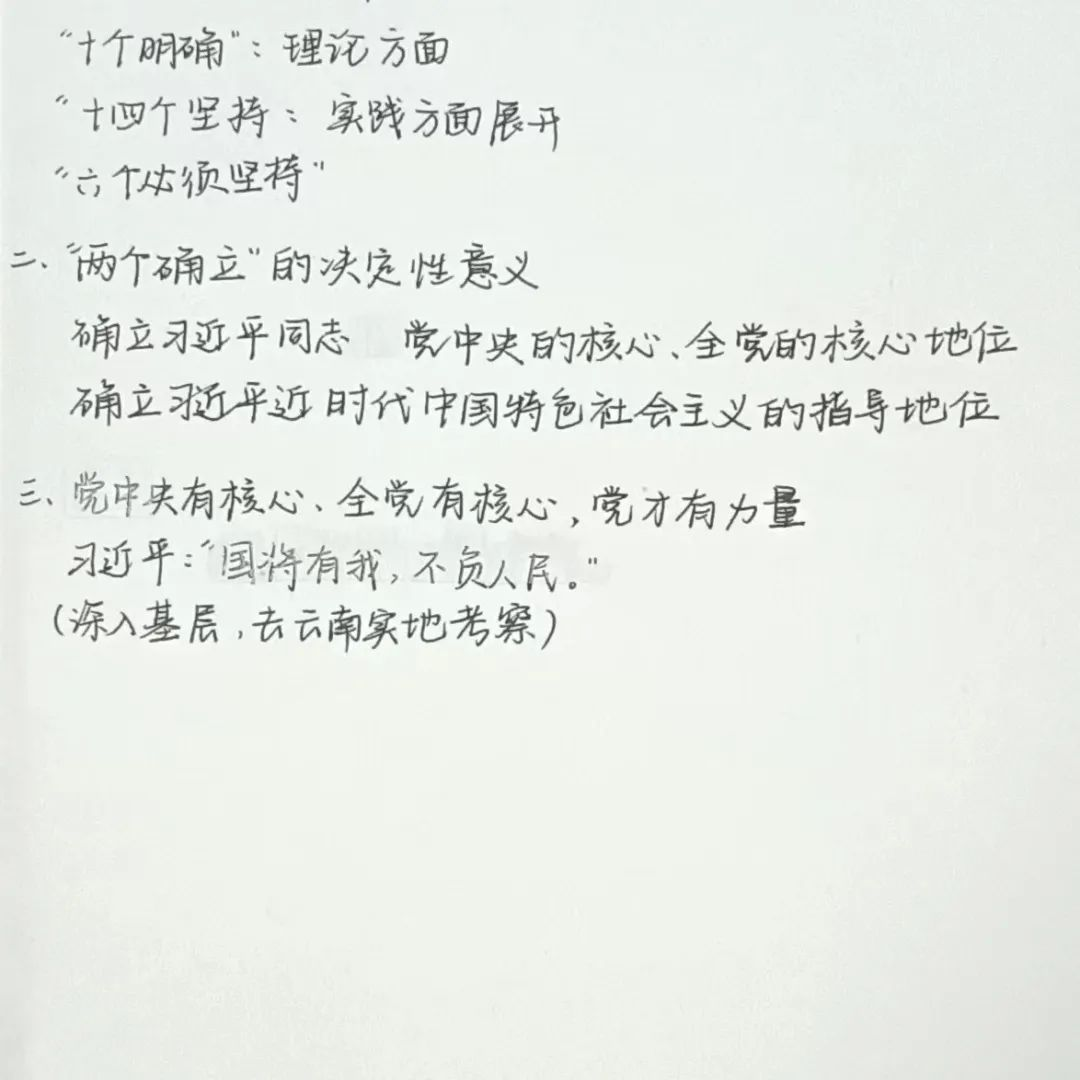 “十个明确”：理论方面
“十四个坚持：实践方面展开
“六个必须坚持”
二、“两个确立”的决定性意义
确立习近平同志 党中央的核心、全党的核心地位
确立习近平近时代中国特色社会主义的指导地位
三、党中央有核心、全党有核心，党才有力量
习近平：“国将有我，不负人民。”
（深入基层，去云南实地考察）